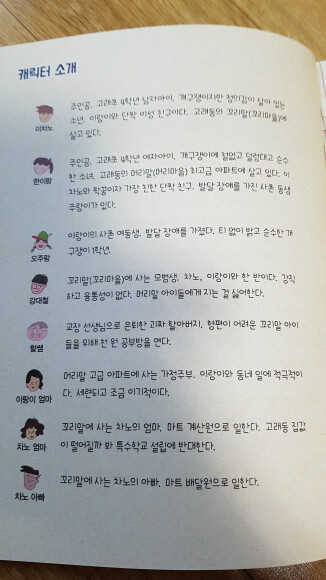 캐릭터 소개
주인공, 고래초 4학년 남자아이, 개구쟁이지만 정의감이 살아 있는
소년. 이랑이와 단짝 이성 친구이다. 고래동의 꼬리말(꼬리마을)에
살고 있다.
이차노
주인공, 고래초 4학년 여자아이, 개구쟁이에 철없고 덜렁대고 순수
한 소녀. 고래동의 머리말(머리마을) 최고급 아파트에 살고 있다. 이
차노와 짝꿍이자 가장 친한 단짝 친구. 발달 장애를 가진 사촌 동생
주랑이가 있다.
한이랑
이랑이의 사촌 여동생. 발달 장애를 가졌다. 티 없이 밝고 순수한 개
구쟁이 1학년.
오주랑
꼬리말(꼬리마을)에 사는 모범생. 차노, 이랑이와 한 반이다. 강직
하고 융통성이 없다. 머리말 아이들에게 지는 걸 싫어한다.
강대철
교장 선생님으로 은퇴한 괴짜 할아버지. 형편이 어려운 꼬리말 아이
들을 위해 천 원 공부방을 연다.
할쌤
머리말 고급 아파트에 사는 가정주부. 이랑이와 동네 일에 적극적이
다. 세련되고 조금 이기적이다.
이랑이 엄마
꼬리말에 사는 차노의 엄마. 마트 계산원으로 일한다. 고래동 집값
이 떨어질까 봐 특수학교 설립에 반대한다.
차노 엄마
꼬리말에 사는 차노의 아빠. 마트 배달원으로 일한다.
차노 아빠